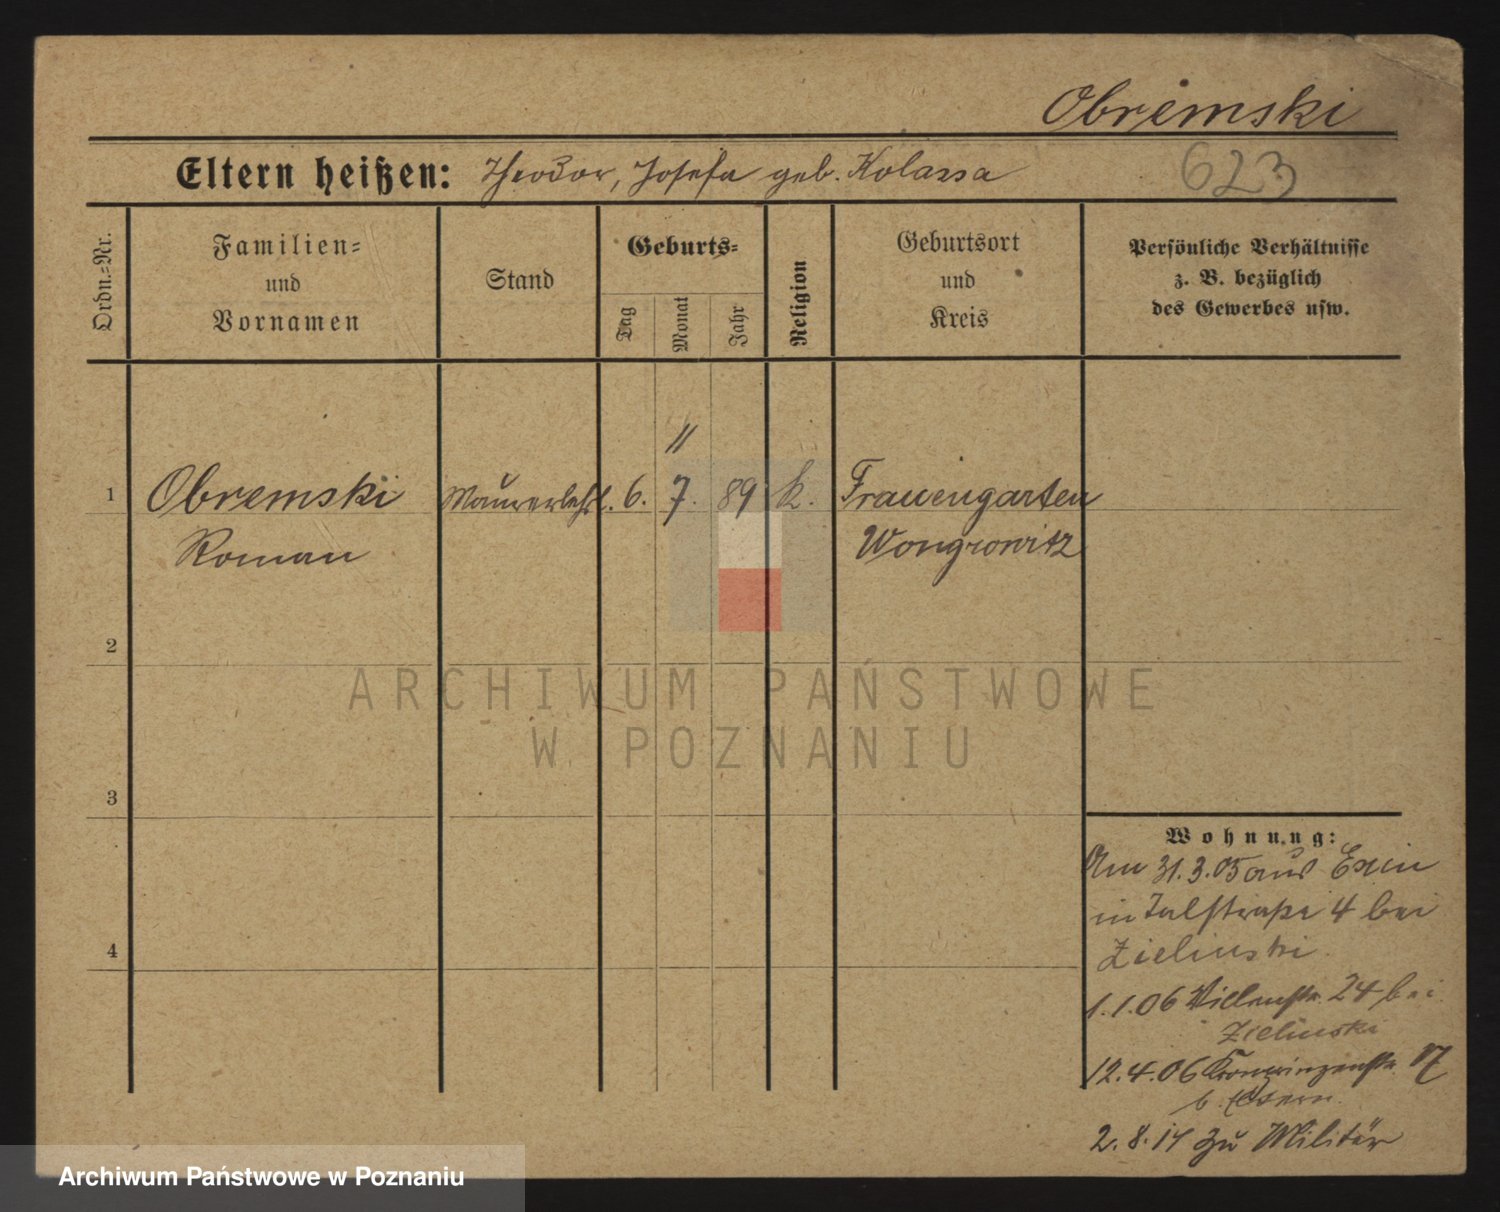 Obremski
Eltern heißen: Theodor, Josefa geb. Kolassa
623
Ordn.-Nr.
Familien-
und
Vornamen
Stand
Geburts-
Tag
Monat
Jahr
Religion
Geburtsort
und
Kreis
Persönliche Verhältnisse
z. B. bezüglich
des Gewerbes usw.
1 Obremski Maurerlehrl. 6. 7. 89 k. Frauengarten
Roman Wongrowitz
2
3
4
Wohnung:
Am 31.3.05 aus Exin
in Talstraße 4 bei
Zielinski.
1.1.06 Villenstr. 24 bei
Zielinski
12.4.06 Kronprinzenstr.
b. Eltern.
2.8.14 zu Militär
ARCHIWUM PAŃSTWOWE
W POZNANIU
Archiwum Państwowe w Poznaniu